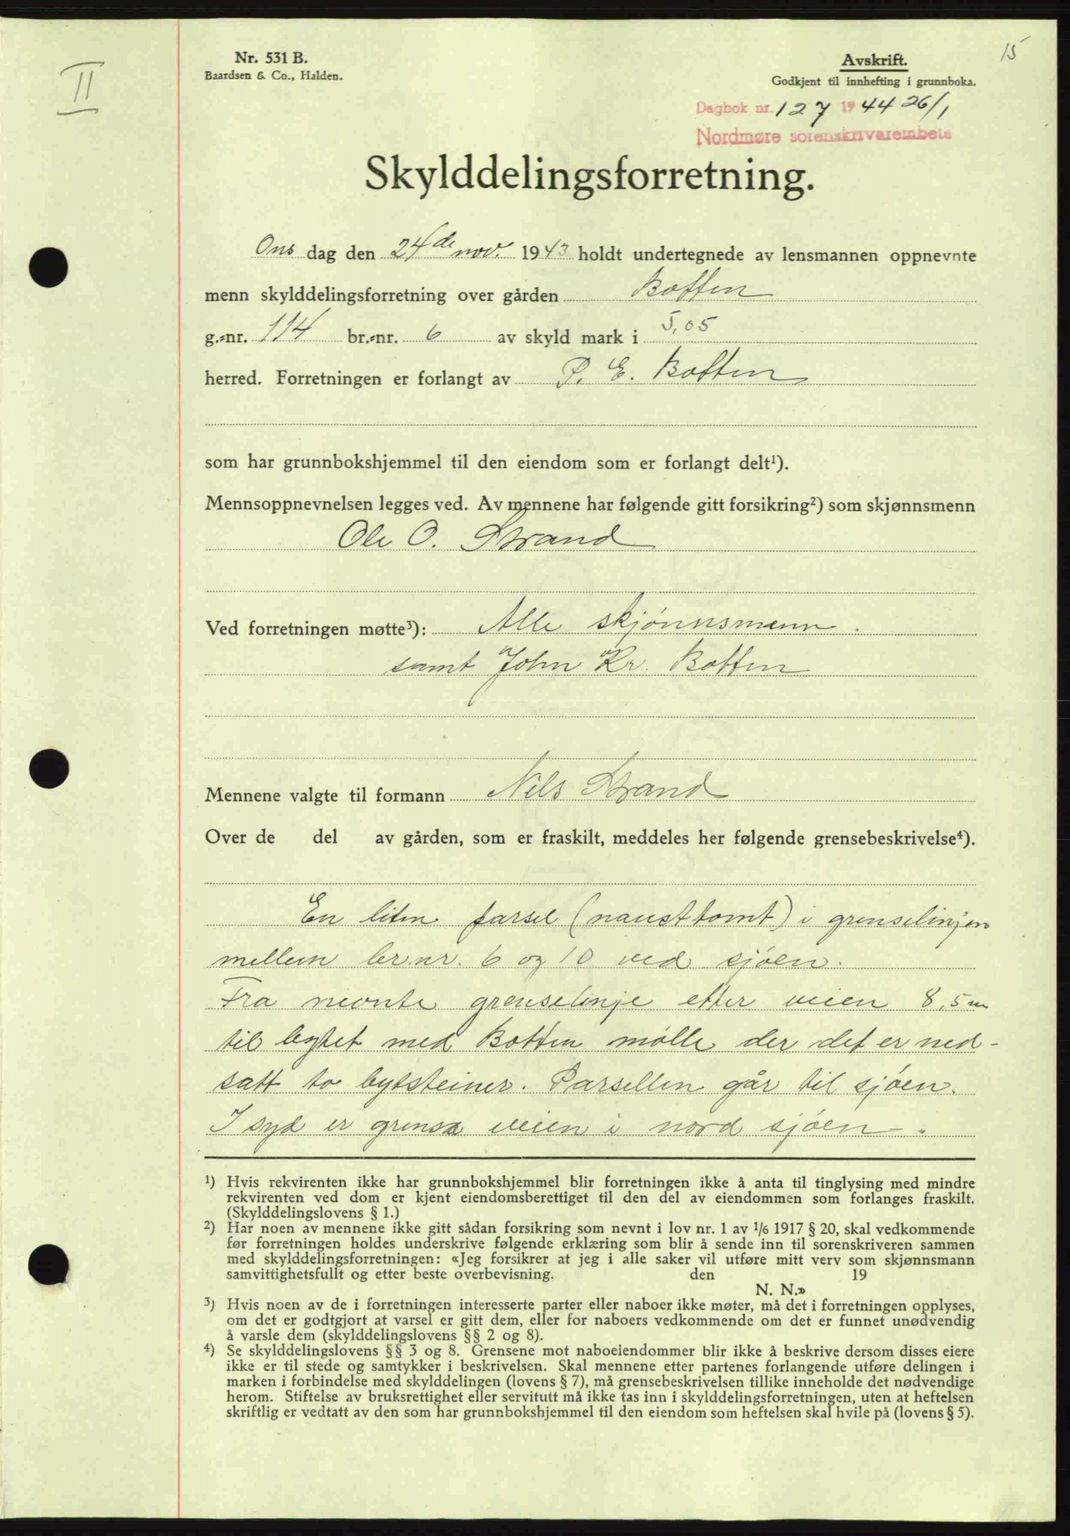 15
II
Nr. 531 B.
Baardsen & Co., Halden.
Avskrift.
Godkjent til innhefting i grunnboka.
Dagbok nr. 127 1944 26/1
Nordmøre sorenskrivarembete
Skylddelingsforretning.
Ons dag den 24de nov. 1943 holdt undertegnede av lensmannen oppnevnte
menn skylddelingsforretning over gården Botten
g.-nr. 114 br.-nr. 6 av skyld mark i 5,05
herred. Forretningen er forlangt av P. E. Botten
som har grunnbokshjemmel til den eiendom som er forlangt delt¹).
Mennsoppnevnelsen legges ved. Av mennene har følgende gitt forsikring²) som skjønnsmenn
Ole O. Strand
Ved forretningen møtte³): Alle skjønnsmenn.
samt John Kr. Botten
Mennene valgte til formann Nils Strand
Over de del av gården, som er fraskilt, meddeles her følgende grensebeskrivelse⁴).
En liten parsel (nausttomt) i grenselinjen
mellem br.nr. 6 og 10 ved sjøen.
Fra nevnte grenselinje etter veien 8,5 m
til bytet med Botten mølle der det er ned-
satt to bytsteiner. Parsellen går til sjøen.
I syd er grensa veien i nord sjøen.
¹) Hvis rekvirenten ikke har grunnbokshjemmel blir forretningen ikke å anta til tinglysing med mindre
rekvirenten ved dom er kjent eiendomsberettiget til den del av eiendommen som forlanges fraskilt.
(Skylddelingslovens § 1.)
²) Har noen av mennene ikke gitt sådan forsikring som nevnt i lov nr. 1 av 1/6 1917 § 20, skal vedkommende
før forretningen holdes underskrive følgende erklæring som blir å sende inn til sorenskriveren sammen
med skylddelingsforretningen: «Jeg forsikrer at jeg i alle saker vil utføre mitt verv som skjønnsmann
samvittighetsfullt og etter beste overbevisning. den 19
N. N.»
³) Hvis noen av de i forretningen interesserte parter eller naboer ikke møter, må det i forretningen opplyses,
om det er godtgjort at varsel er gitt dem, eller for naboers vedkommende om det er funnet unødvendig
å varsle dem (skylddelingslovens §§ 2 og 8).
⁴) Se skylddelingslovens §§ 3 og 8. Grensene mot naboeiendommer blir ikke å beskrive dersom disses eiere
ikke er til stede og samtykker i beskrivelsen. Skal mennene etter partenes forlangende utføre delingen i
marken i forbindelse med skylddelingen (lovens § 7), må grensebeskrivelsen tillike inneholde det nødvendige
herom. Stiftelse av bruksrettighet eller servitutt må ikke tas inn i skylddelingsforretningen, uten at heftelsen
skriftlig er vedtatt av den som har grunnbokshjemmel til den eiendom som heftelsen skal hvile på (lovens § 5).